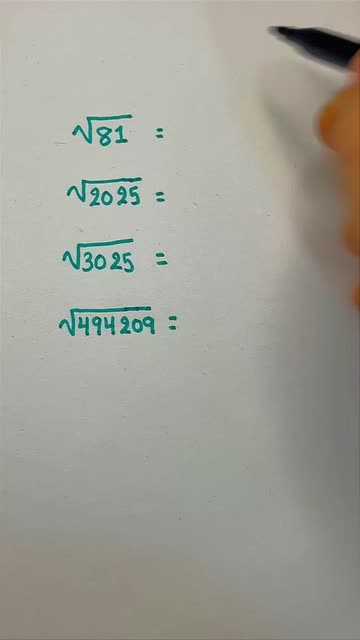 √81 =
√2025 =
√3025 =
√494209 =